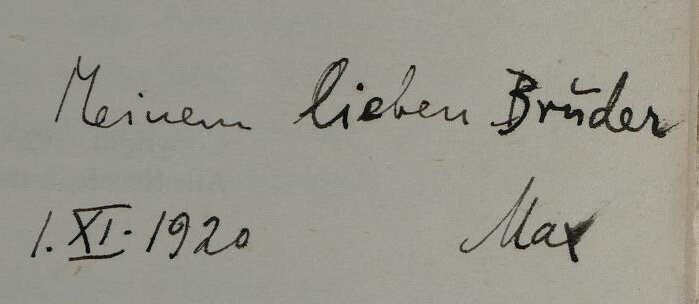 Meinem lieben Bruder
1. XI. 1920 Max